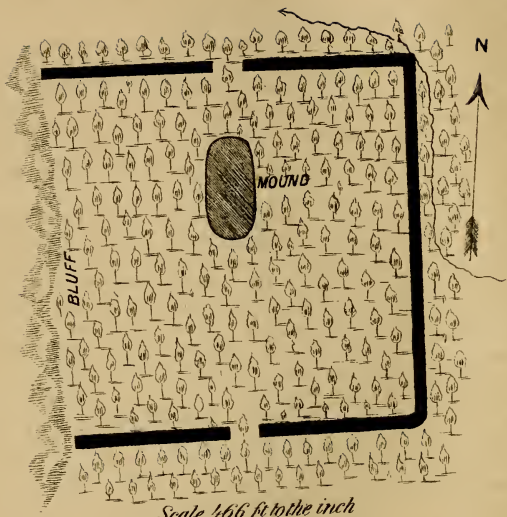 N
MOUND
BLUFF
Scale 466 ft to the inch